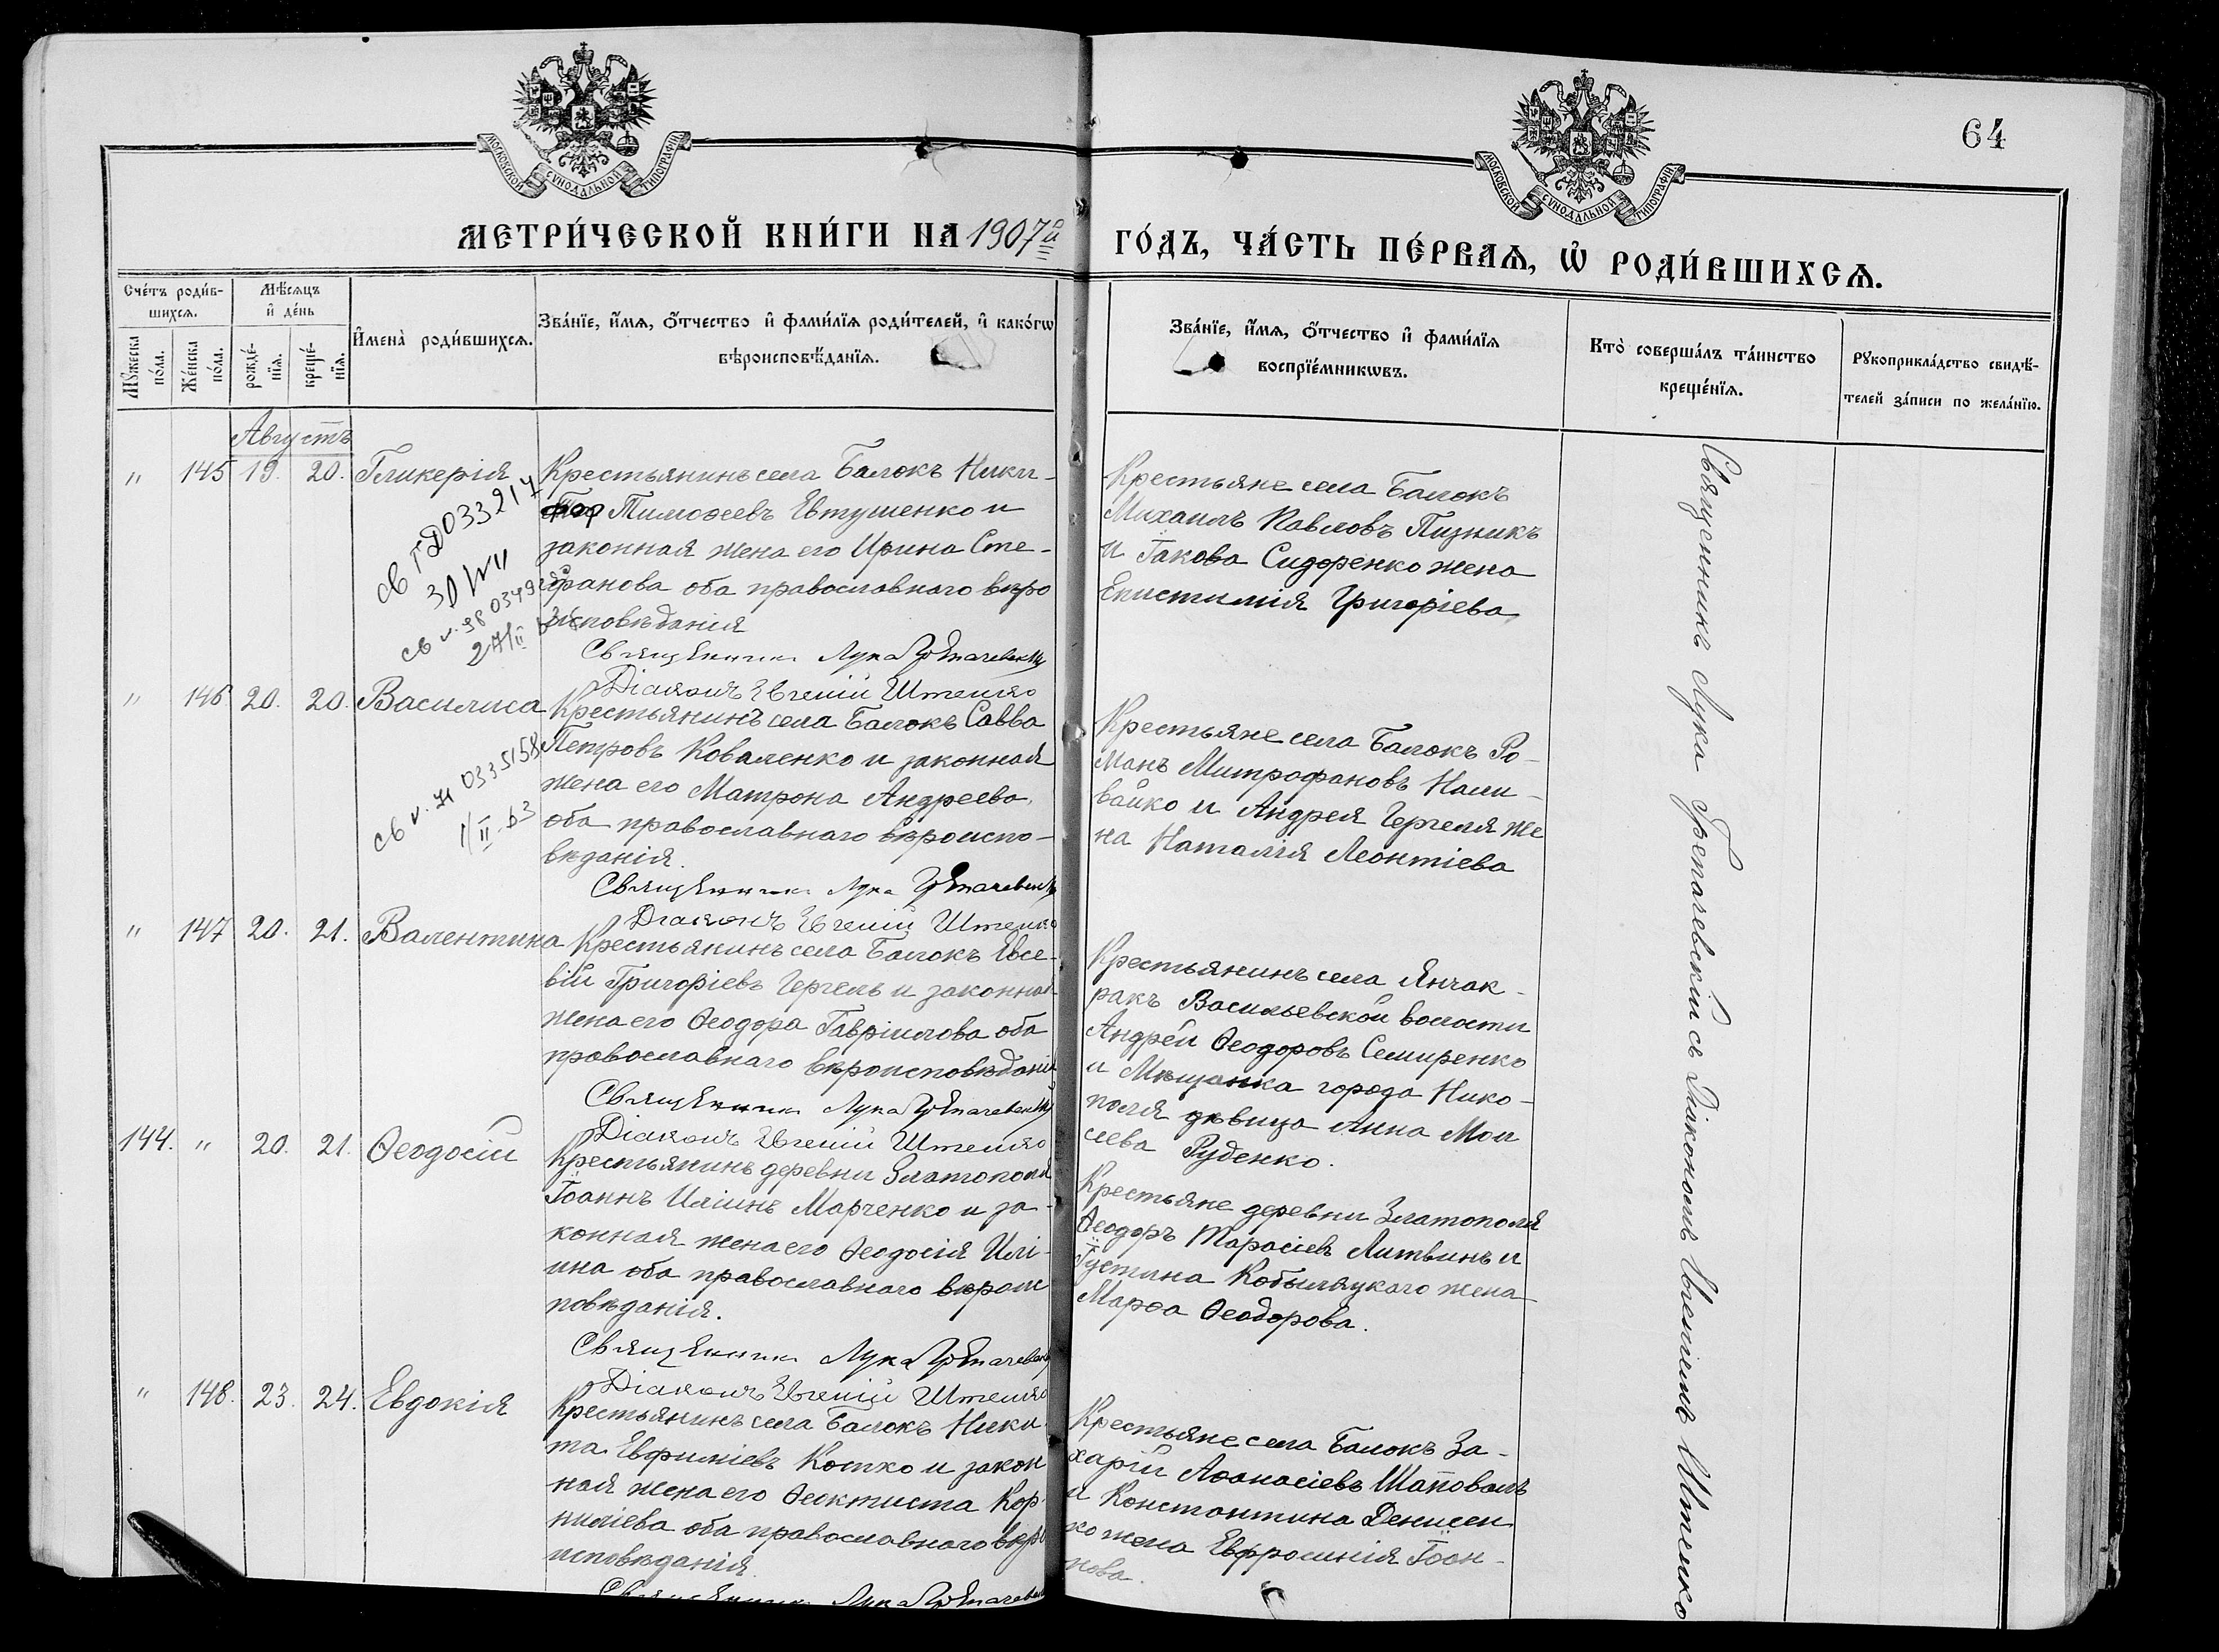 МОСКОВСКОЙ СѴНОДАЛЬНОЙ ТИПОГРАФІИ
МОСКОВСКОЙ СѴНОДАЛЬНОЙ ТИПОГРАФІИ
64
МЕТРИ́ЧЕСКОЙ КНИ́ГИ НА 1907й
ГО́ДЪ, ЧА́СТЬ ПЕ́РВАѦ, Ѡ҆ РОДИ́ВШИХСѦ.
Сче́тъ роди́в-
шихсѧ.
Мꙋ́жеска по́ла.
Же́нска по́ла.
Мѣ́сѧцъ
и҆ де́нь
рожде́-
нїѧ.
креще́-
нїѧ.
И҆мена̀ роди́вшихсѧ.
Зва́нїе, и҆́мѧ, ѻ҆́тчество и҆ фами́лїѧ роди́телей, и҆ како́гѡ
вѣроисповѣ́данїѧ.
Зва́нїе, и҆́мѧ, ѻ҆́тчество и҆ фами́лїѧ
воспрїе́мникѡвъ.
Кто̀ соверша́лъ та́инство
креще́нїѧ.
Рꙋкоприкла́дство свидѣ́-
телей за́писи по жела́нїю.
Августъ
" 145 19. 20. Гликерія
Крестьянинъ села Балокъ Ники-
фор Тимоѳеевъ Евтушенко и
законная жена его Ирина Сте-
фанова оба православнаго вѣро
исповѣданія
Священникъ Лука Грепачевскій
Діаконъ Евгеній Штепко
Крестьяне села Балокъ
Михаилъ Павловъ Пизникъ
и Іакова Сидоренко жена
Епистимія Григоріева
" 146 20. 20. Василиса
Крестьянинъ села Балокъ Савва
Петровъ Коваленко и законная
жена его Матрона Андреева,
оба православнаго вѣроиспо-
вѣданія.
Священникъ Лука Грепачевскій
Діаконъ Евгеній Штепко
св v. 0335158
1/II-63
Крестьяне села Балокъ Ро-
манъ Митрофановъ Нали-
вайко и Андрея Гергеля же
на Наталія Леонтіева
" 147 20. 21. Валентина
Крестьянинъ села Балокъ Евсе-
вій Григоріевъ Гергель и законная
жена его Ѳеодора Гавріилова оба
православнаго вѣроисповѣданія
Священникъ Лука Грепачевскій
Діаконъ Евгеній Штепко
Крестьянинъ села Янчак-
ракъ Васильевской волости
Андрей Ѳеодоровъ Семиренко
и Мѣщанка города Нико-
поля дѣвица Анна Мои
сеева Руденко.
144. " 20. 21. Ѳеодосій
Крестьянинъ деревни Златополя
Іоаннъ Иліинъ Марченко и за-
конная жена его Ѳеодосія Илі-
ина оба православнаго вѣроис
повѣданія.
Священникъ Лука Грепачевскій
Діаконъ Евгеній Штепко
Крестьяне деревни Златополя
Ѳеодоръ Тарасіевъ Литвинъ и
Іустина Кобыляцкаго жена
Марѳа Ѳеодорова.
" 148. 23. 24. Евдокія
Крестьянинъ села Балокъ Ники-
та Евфиміевъ Костко и закон
ная жена его Ѳеоктиста Кор-
ниліева оба православнаго вѣро
исповѣданія.
Священникъ Лука Грепачевскій
Крестьяне села Балокъ За-
харій Аѳанасіевъ Шаповалъ
и Константина Денисен
ко жена Евфросинія Іоан-
нова.
Священникъ Лука Грепачевскій съ Діакономъ Евгеніемъ Штепко